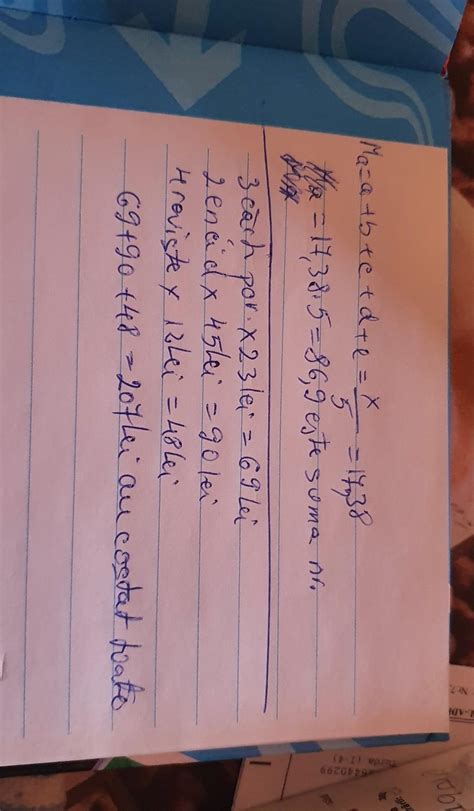 Ma = a + b + c + d + e = x/5 = 17,38
Ma = 17,38·5 = 86,9 este suma nr.
3 cărți pov. x 23 lei = 69 lei
2 encicl x 45 lei = 90 lei
4 reviste x 12 lei = 48 lei
69 + 90 + 48 = 207 lei au costat toate
6440299
(I-4)